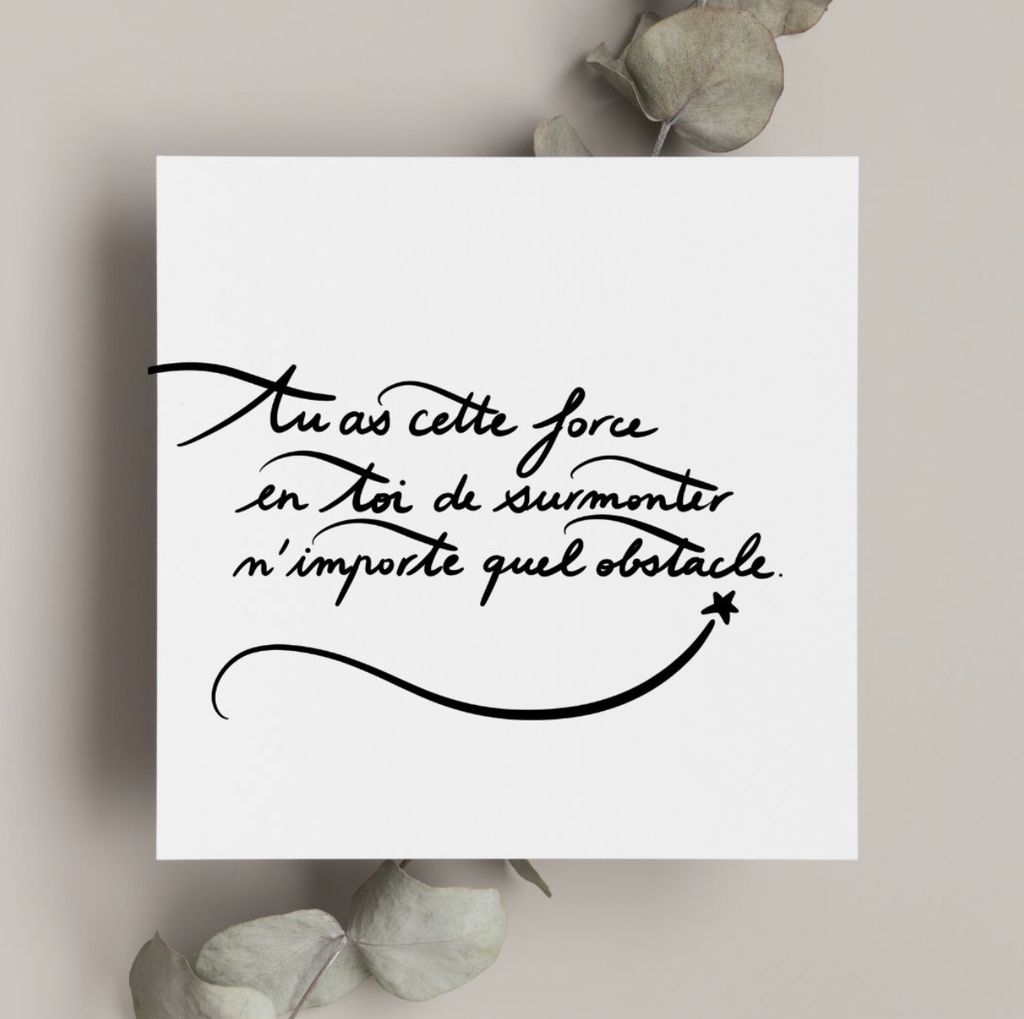 Tu as cette force
en toi de surmonter
n'importe quel obstacle.